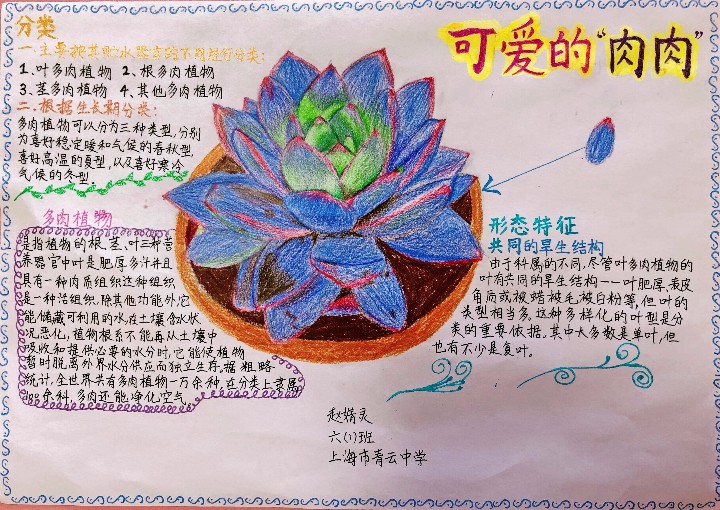 可爱的"肉肉"
分类
一.主要按其贮水器官的不同进行分类:
1、叶多肉植物 2、根多肉植物
3、茎多肉植物 4、其他多肉植物
二.根据生长期分类:
多肉植物可以分为三种类型,分别
为喜好稳定暖和气候的春秋型,
喜好高温的夏型,以及喜好寒冷
气候的冬型.
多肉植物
是指植物的根、茎、叶三种营
养器官中叶是肥厚多汁并且
具有一种肉质组织这种组织
是一种活组织.除其他功能外,它
能储藏可利用的水,在土壤含水状
况恶化,植物根系不能再从土壤中
吸收和提供必要的水分时,它能使植物
暂时脱离外界水分供应而独立生存,据粗略
统计,全世界共有多肉植物一万余种,在分类上隶属
余科,多肉还能净化空气.
形态特征
共同的旱生结构
由于科属的不同,尽管叶多肉植物的
叶有共同的旱生结构——叶肥厚,表皮
角质或被蜡被毛被白粉等,但叶的
类型相当多,这种多样化的叶型是分
类的重要依据。其中大多数是单叶,但
也有不少是复叶。
赵婧灵
六(1)班
上海市青云中学